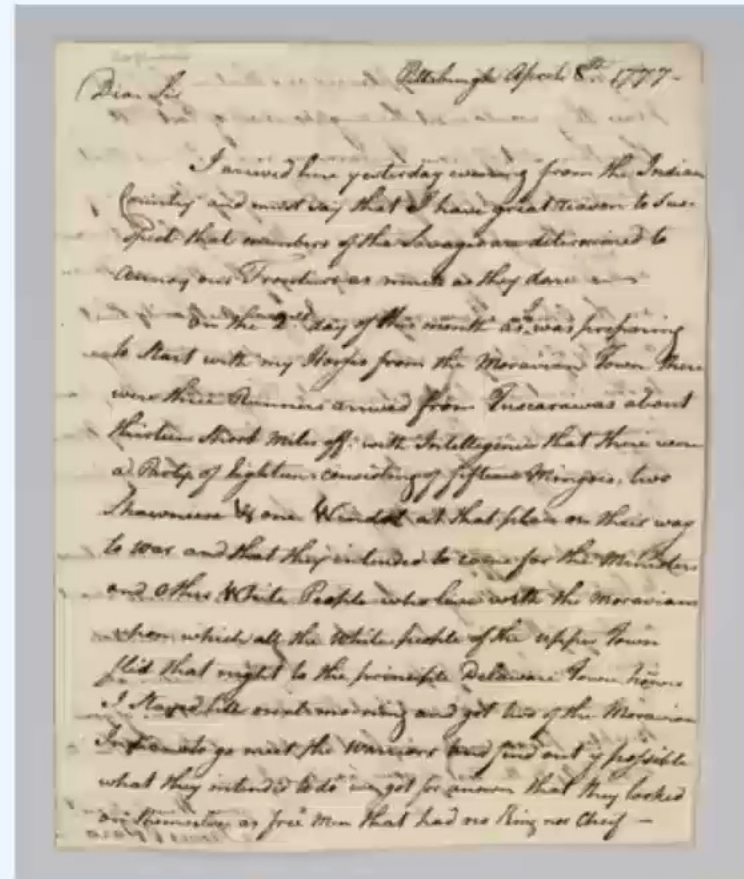 Pittsburgh April 8th. 1777 -
Dear Sir
I arrived here yesterday evening from the Indian
Country and must say that I have great reason to Sus-
pect that numbers of the Savages are determined to
annoy our Frontiers as much as they dare
On the 2d day of this month as I was preparing
to Start with my Horses from the Moravian Town there
were three Runners arrived from Tuscarawas about
thirteen Short miles off. with Intelligence that there were
a Party of Eighteen consisting of fifteen Mingoes, two
Shawnese & one Windot at that place on their way
to war and that they intended to come for the Ministers
and other White People who live with the Moravians
upon which all the White people of the upper Town
fled that night to the principle Delaware Town
I Stayed till next morning and got two of the Moravian
Indians to go meet the warriors and find out if possible
what they intended to do we got for answer that they looked
on themselves as free Men that had no King nor Cheif -